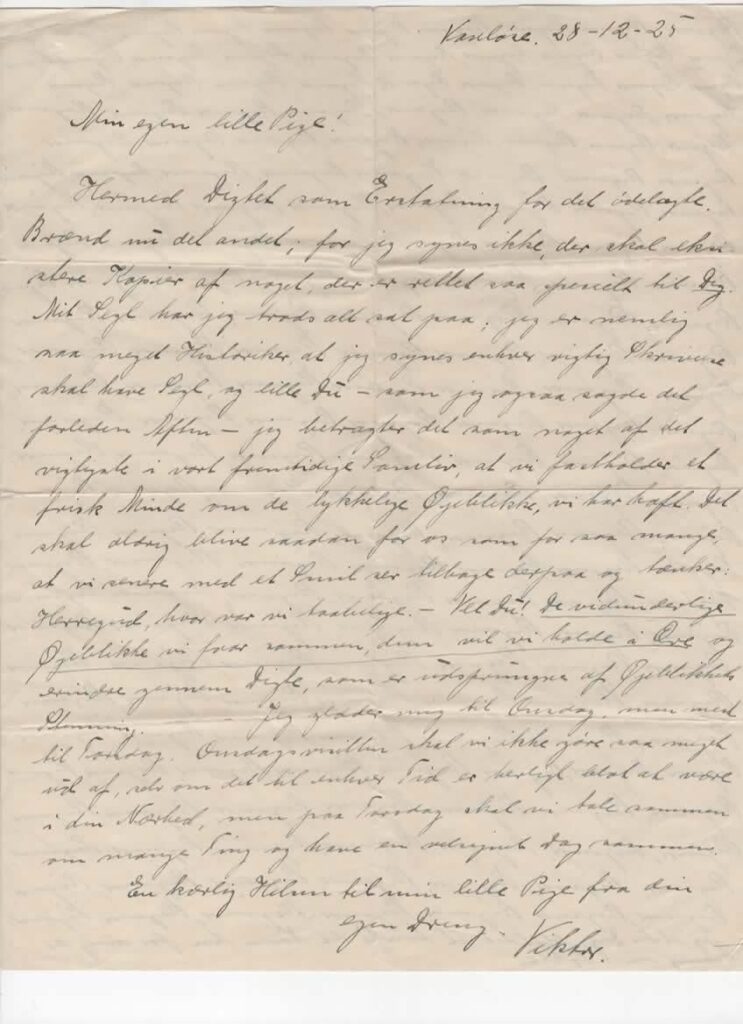 Vanløse. 28-12-25
Min egen lille Pige!
Hermed Digtet som Erstatning for det ødelagte.
Brænd nu det andet; for jeg synes ikke, der skal eksi
stere Kopier af noget, der er rettet saa specielt til Dig.
Mit Segl har jeg trods alt sat paa; jeg er nemlig
saa meget Historiker, at jeg synes enhver vigtig Skrivelse
skal have Segl, og lille Du – som jeg ogsaa sagde det
forleden Aften – jeg betragter det som noget af det
vigtigste i vort fremtidige Samliv, at vi fastholder et
frisk Minde om de lykkelige Øjeblikke, vi har haft. Det
skal aldrig blive saadan for os som for saa mange,
at vi senere med et Smil ser tilbage derpaa og tænker:
Herregud, hvor var vi taabelige. – Vel Du! De vidunderlige
Øjeblikke vi har sammen, dem vil vi holde i Ære og
erindre gennem Digte, som er udsprungne af Øjeblikkets
Stemning. – Jeg glæder mig til Onsdag, men mest
til Torsdag. Onsdagsvisitten skal vi ikke gøre saa meget
ud af, selv om det til enhver Tid er herligt blot at være
i din Nærhed, men paa Torsdag skal vi tale sammen
om mange Ting og have en velsignet Dag sammen.
En kærlig Hilsen til min lille Pige fra din
egen Dreng.
Viktor.